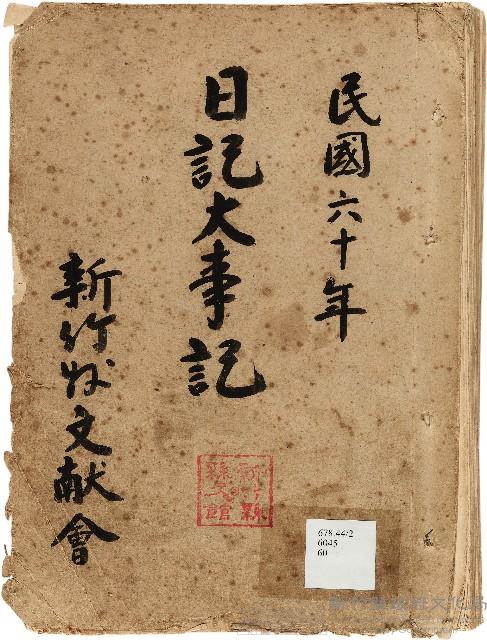 民國六十年
日記大事記
新竹州文献會
678.44/2
6045
60
新竹縣政府文化局